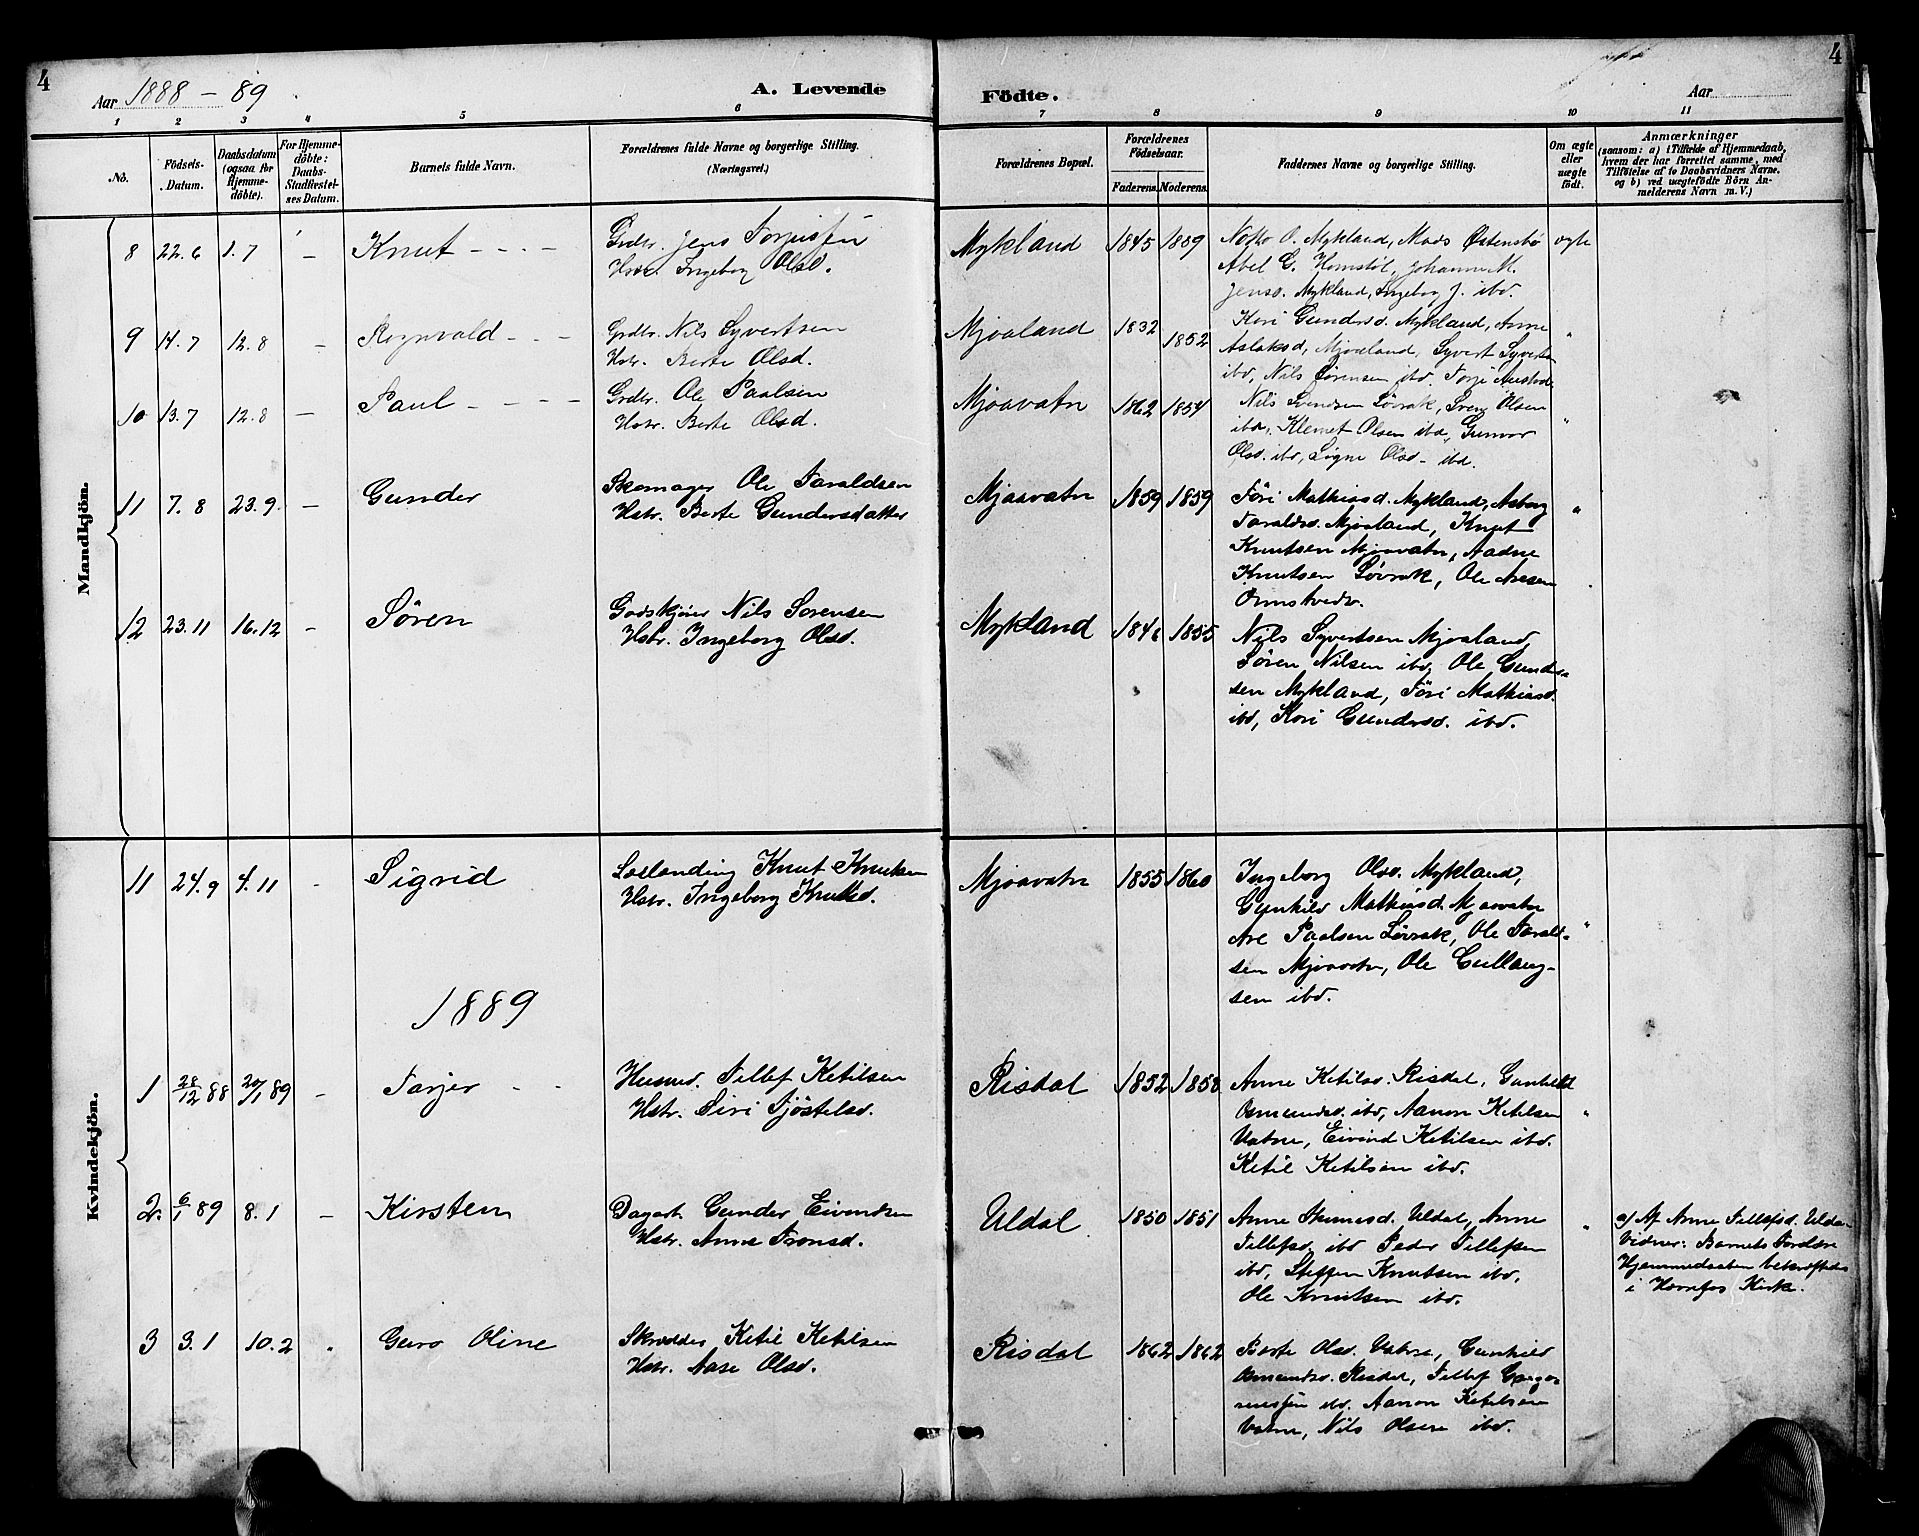 4
Aar 1888 - 89
A. Levende
Födte.
Aar
4
1 2 3 4 5 6 7 8 9 10 11
No.
Födsels-
Datum.
Daabsdatum
(ogsaa for
Hjemme-
döbte).
For Hjemme-
döbte:
Daabs-
Stadfæstel-
ses Datum.
Barnets fulde Navn.
Forældrenes fulde Navne og borgerlige Stilling.
(Næringsvei.)
Forældrenes Bopæl.
Forældrenes
Födselsaar.
Faderens. Moderens.
Faddernes Navne og borgerlige Stilling.
Om ægte
eller
uægte
födt.
Anmærkninger
(saasom: a) i Tilfælde af Hjemmedaab,
hvem der har forrettet samme, med
Tilföielse af to Daabsvidners Navne,
og b) ved uægtefödte Börn An-
melderens Navn m. V.)
Mandkjön.
8 22.6 1.7 - Knut - - - -
Grdbr. Jens Torjussen
Hstr. Ingeborg Olsd.
Mykland 1845 1859
Notto O. Mykland, Mads Østensbø
Abel G. Homstøl, Johanne M.
Jensd. Mykland, Ingeborg J. ibd.
ægte
9 14.7 12.8 - Rognvald - - -
Grdbr. Nils Syvertsen
Hstr. Berte Olsd.
Mjoaland 1832 1852
Kari Gundersd. Mykland, Anne
Aslaksd, Mjoaland, Syvert Syverts
ibd, Nils Sørensen ibd. Torje
"
10 13.7 12.8 - Paul - - - -
Grdbr. Ole Paalsen
Hstr. Berte Olsd.
Mjoavatn 1862 1854
Nils Svendsen Løvrak, Sven Olsen
ibd, Klemet Olsen ibd, Gunvor
Olsd. ibd, Signe Olsd - ibd.
"
11 7.8 23.9. - Gunder
Skomager Ole Taraldsen
Hstr. Berte Gundersdatter
Mjoavatn 1859 1859
Töri Mathiasd. Mykland, Asborg
Taraldsd. Mjoaland, Knut
Knutsen Mjoavatn, Aadne
Knutsen Løvrak, Ole Aresen
Ormstvedt.
"
12 23.11 16.12 - Sören
Godskjöer Nils Sorensen
Hstr. Ingeborg Olsd.
Mykland 1846 1855
Nils Syvertsen Mjoaland,
Sören Nilsen ibd, Ole Gunder-
sen Mykland, Töri Mathiasd.
ibd, Kari Gundersd. ibd.
Kvindekjön.
11 24.9 4.11 - Sigrid
Loslanding Knut Knutsen
Hstr. Ingeborg Knutsd.
Mjoavatn 1855 1860
Ingeborg Olsd. Mykland,
Gunhild Mathiasd. Mjoavatn
Are Paalsen Løvrak, Ole Tarald-
sen Mjoavatn, Ole Gullaug-
sen ibd.
"
1889
1 28/12 88 20/1 89 - Tarjer - -
Husmd. Tellef Ketilsen
Hstr. Siri Tjöstelsd.
Risdal 1852 1858
Anne Ketilsd. Risdal, Gunhild
Osmundsd. ibd, Aanon Ketilsen
Vatne, Eivind Ketilsen ibd.
Ketil Ketilsen ibd.
"
2. 6/1 89 8.1 - Kirsten
Dagarb. Gunder Eivindsen
Hstr. Anne Tronsd.
Uldal 1850 1851
Anne Uldal, Anne
Tellefsd. ibd Peder Tellefsen
ibd, Steffen Knutsen ibd,
Ole Knutsen ibd.
"
a) Af Anne Tellefsd. Uldal
Vidner: Barnets Forældre
Hjemmedaaben bekræftedes
i Herefos Kirke.
3 3.1 10.2 " Guro Oline
Skrædder Ketil Ketilsen
Hstr. Aase Olsd.
Risdal 1862 1862
Berte Olsd. Vatne, Gunhild
Osmundsd. Risdal, Tellef
ibd. Aanon Ketilsen
Vatne, Nils Olsen ibd.